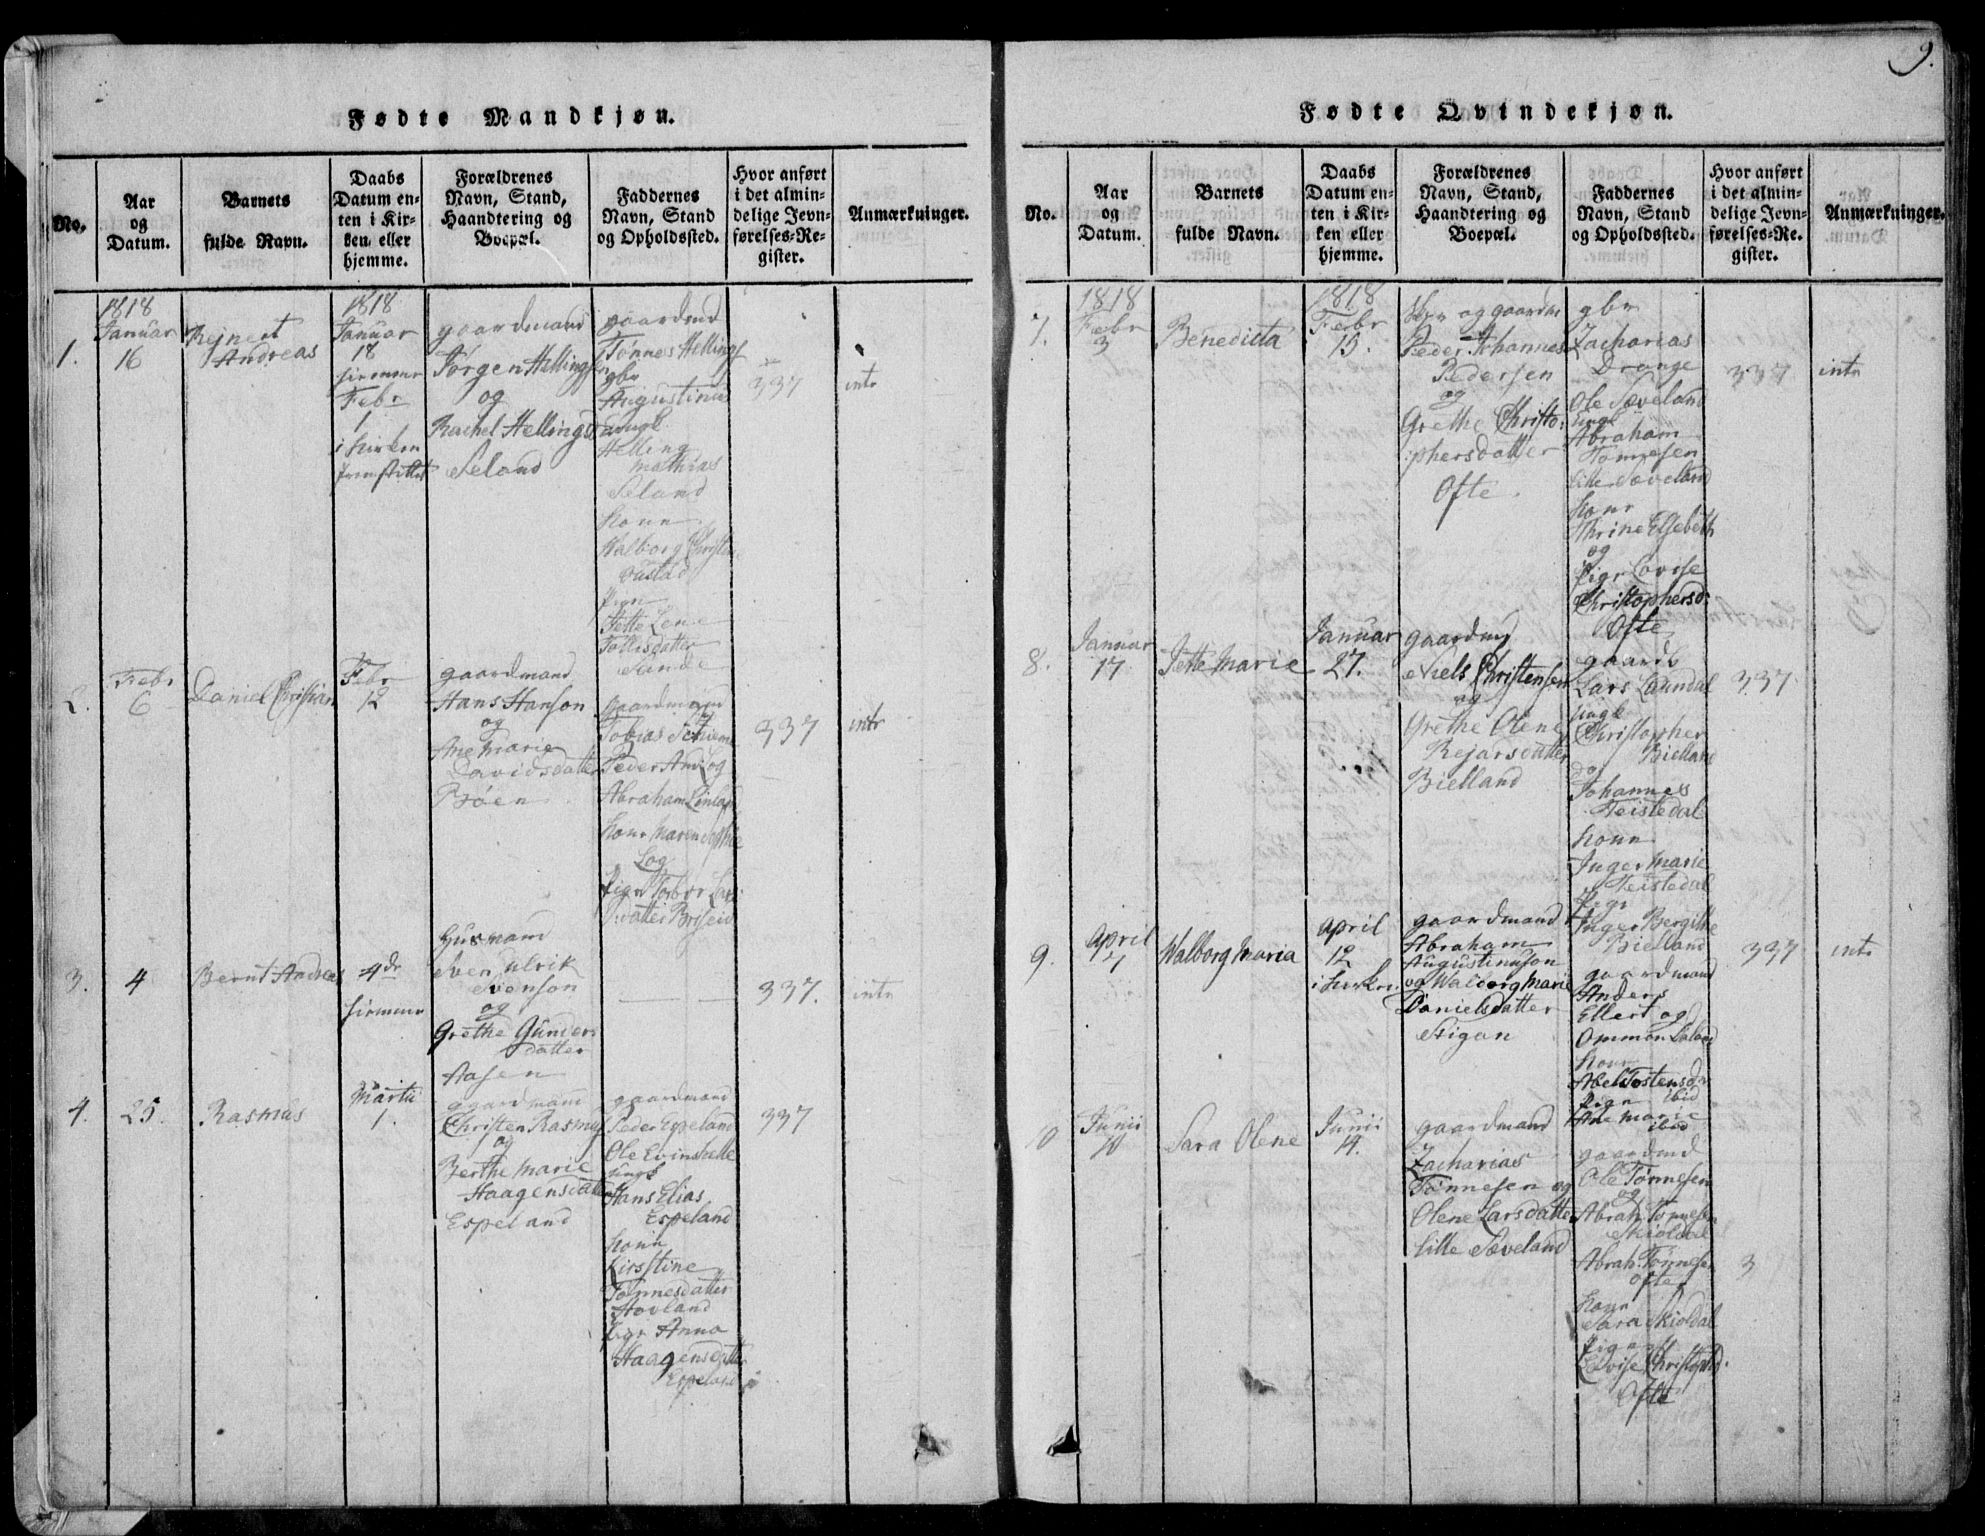 9.
Fødte Mandkjøn.
No.
Aar
og
Datum.
Barnets
fulde Navn.
Daabs
Datum en-
ten i Kir-
ken eller
hjemme.
Forældrenes
Navn, Stand,
Haandtering og
Boepæl.
Faddernes
Navn, Stand
og Opholdssted.
Hvor anført
i det almin-
delige Jevn-
førelses-Re-
gister.
Anmærkninger.
1.
1818
Januar
16
Rejnert
Andreas
1818
Januar
18
hiemme
Febr
1
i kirken
fremstillet
gaardmand
Jørgen Hellings
og
Rachel Hellings
Seland
gaardmd
Tønnes Hellings
gbr
Augustinus
ungk
Helling
Mathias
Seland
kone
Walborg Christen
pige
Jette Lene
Tollisdatter
Sande
337
intr
2.
Febr
6
Daniel Christian
Febr
12
gaardmand
Hans Hanson
og
Ane Marie
Davidsdatter
Bøen
gaardmænd
Tobias
Peder And Log
Abraham
kone Maren Sophie
Log
pige Torbor Lars
datter Briseid
337
intr
3.
4
Bernt Andreas
4de
hiemme
Husmand
Sven Ulrik
Svenson
og
Grethe Gunders
datter
Aasen
337.
intr
4.
25.
Rasmus
Martii
1.
gaardmand
Christen Rasmus
og
Berthe Marie
Haagensdatter
Espeland
gaardmand
Peder Espeland
Ole Evinstelle
ungk
Hans Elias
Espeland
kone
Kirsstine
Tønnesdatter
Hovland
pige Anna
Haagensdatter
Espeland
337
Fødte Qvindekjøn.
No.
Aar
og
Datum.
Barnets
fulde Navn.
Daabs
Datum en-
ten i Kir-
ken eller
hjemme.
Forældrenes
Navn, Stand,
Haandtering og
Boepæl.
Faddernes
Navn, Stand
og Opholdssted.
Hvor anført
i det almin-
delige Jevn-
førelses-Re-
gister.
Anmærkninger.
7.
1818
Febr
3
Benedicta
1818
Febr
15.
og gaardm
Peder Johannes
Pedersen
og
Grethe Christo-
phersdatter
Ofte
gbr
Zacharias
Drange
Ole Sæveland
ungk
Abraham
Tønnesen
lille Sæveland
kone
Thrine Elsebeth
og
pige Lovise
Christophersd:
Ofte
337
intr
8.
Januar
17
Jette Marie
Januar
27.
gaardmd
Niels Christensen
og
Grethe Olene
Rejarsdatter
Bielland
gaardb
Lars Laundal
ungk
Christopher
Bielland
og
Johannes
Teistedal
kone
Inger Marie
Teistedal
Pige
Inger Bergithe
Bielland
337
9.
April
7
Walborg Maria
April
12
i kirken
gaardmand
Abraham
Augustinuson
og Walborg Marie
Danielsdatter
Stigan
gaardmand
Anders
Ellert og
Ommon Seland
kone
Abel Tostensd
pige ibid
Ane Marie
ibid
337
intr
10
Junii
10
Sara Olene
Junii
14.
gaardmand
Zacharias
Tønnesen og
Olene Larsdatter
lille Sæveland
gaardmd
Ole Tønnesen
og
Abrah. Tønnesen
Skioldal
Abrah. Tønnesen
Ofte
kone
Sara Skioldal
pige
Lovise Christophd.
Ofte
3